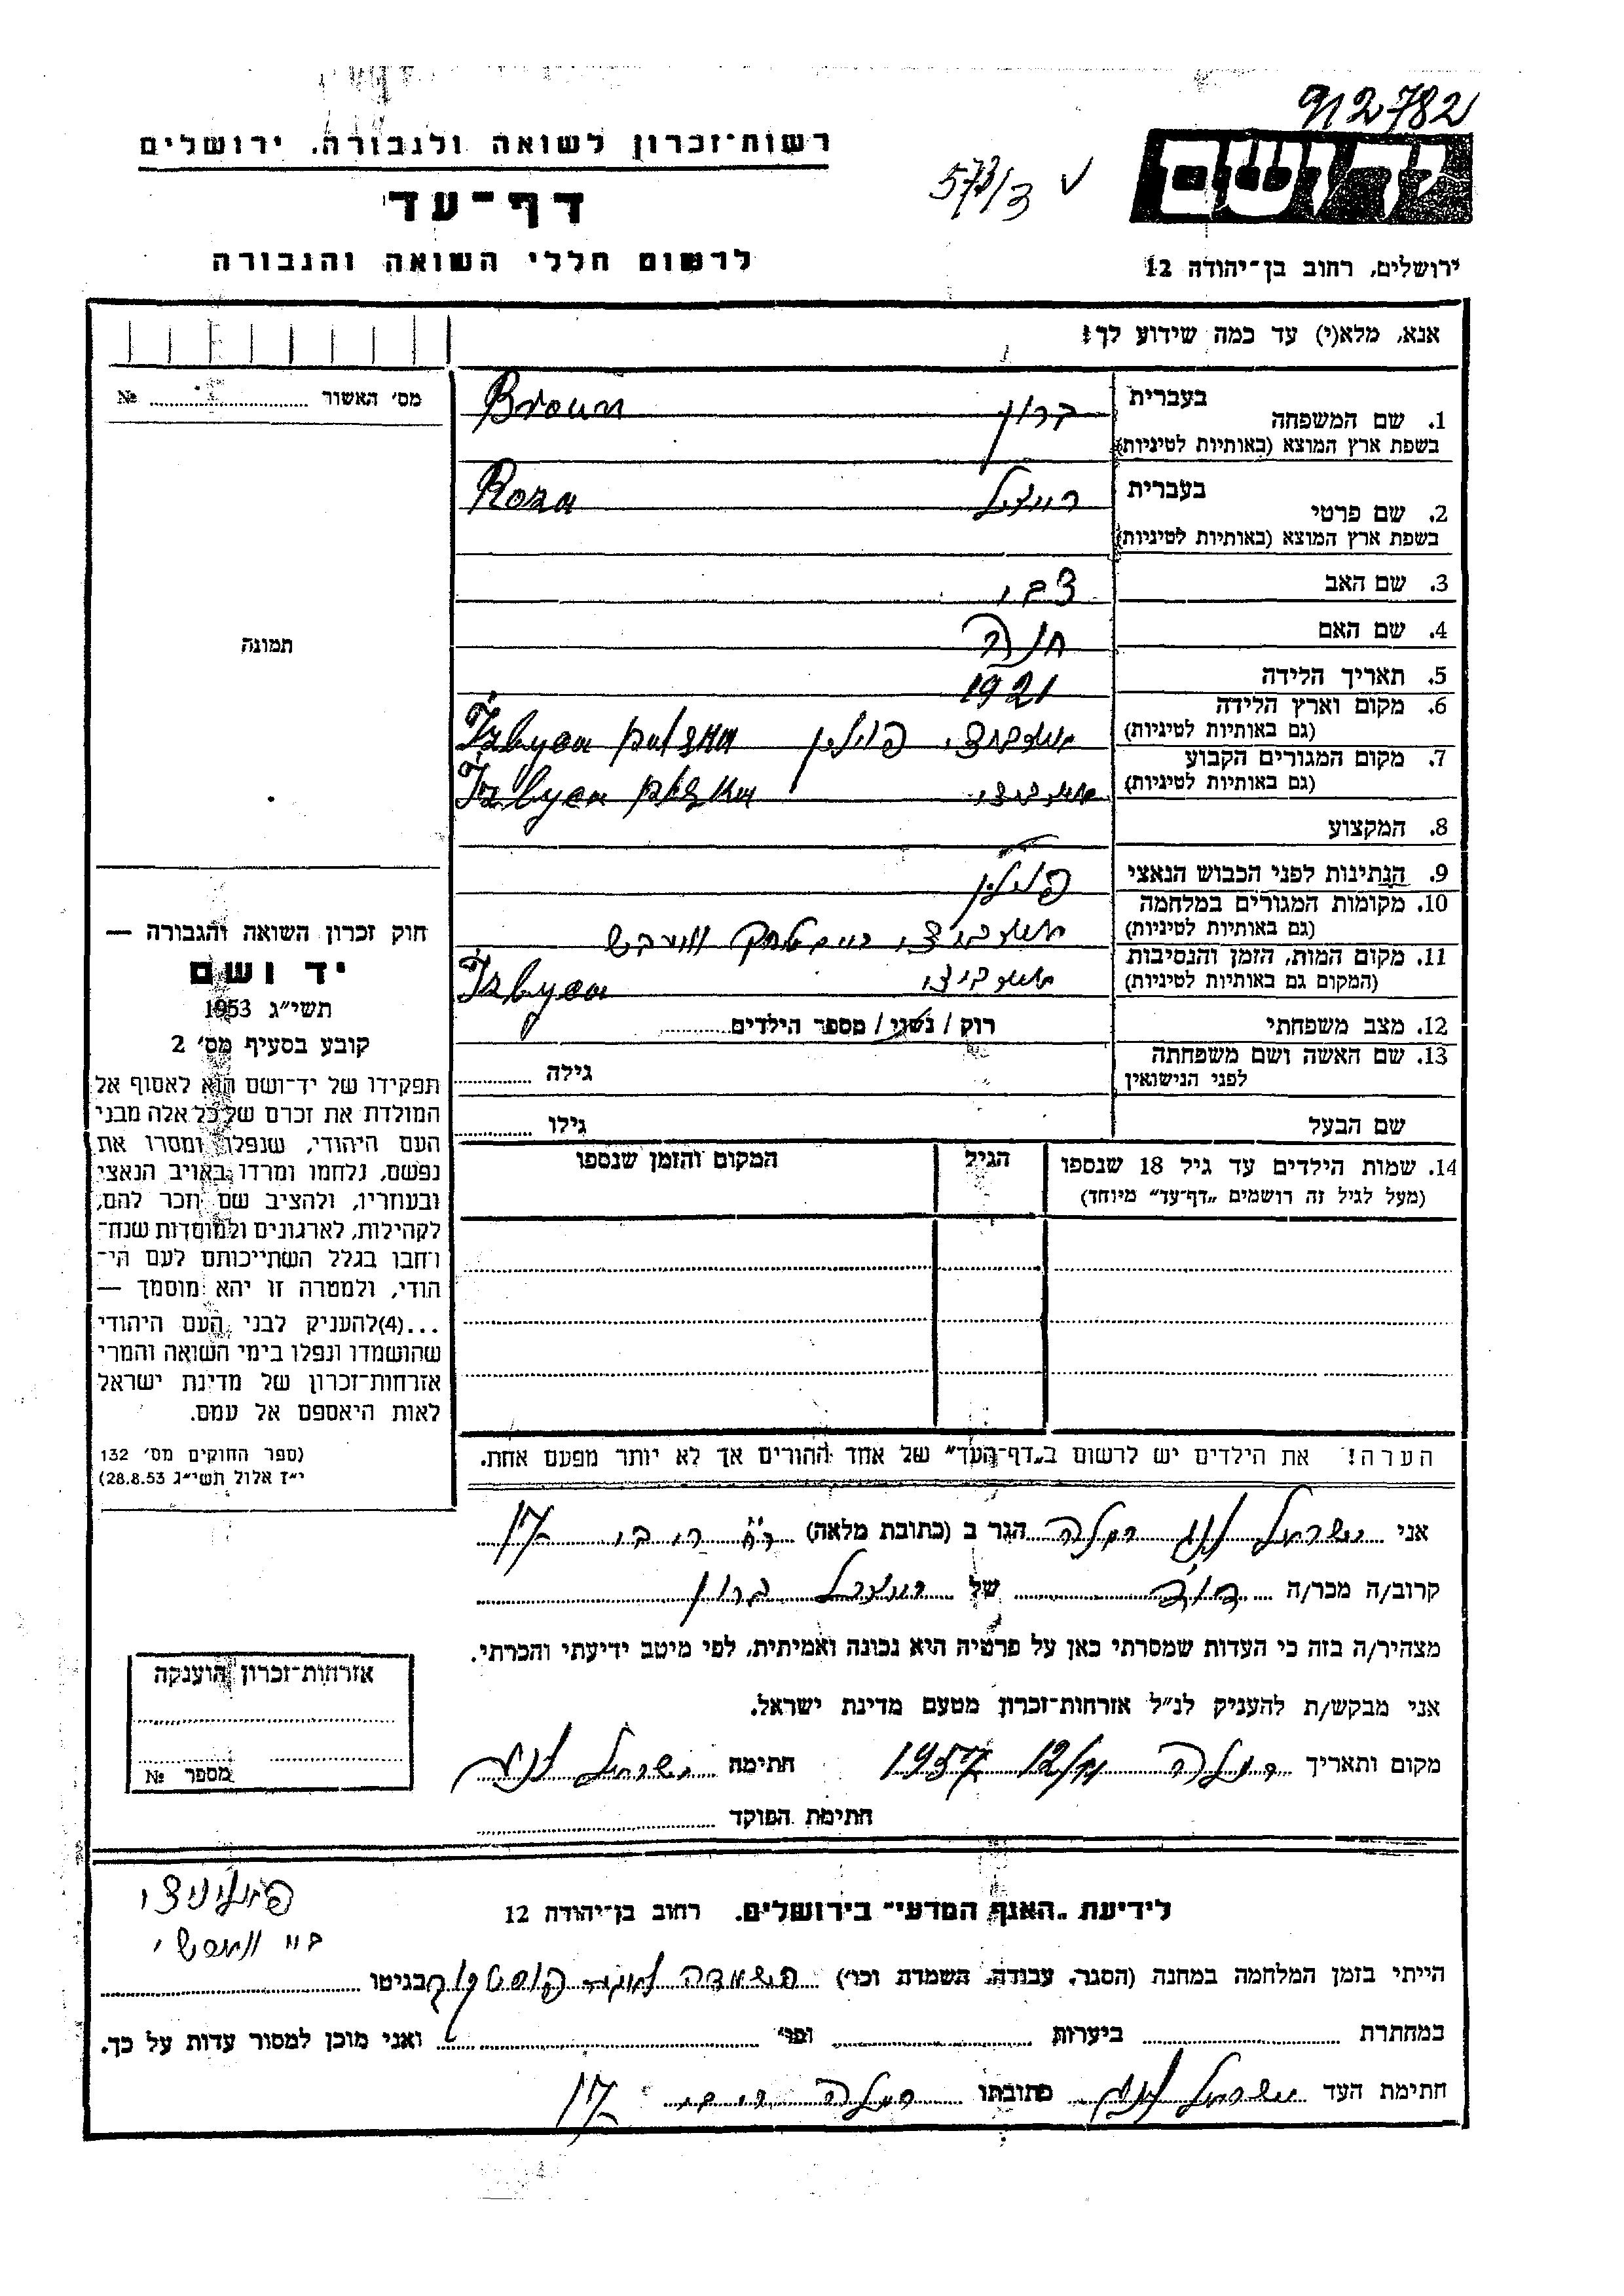 912782
רשות־זכרון לשואה ולגבורה. ירושלים
573/3 V
ידושם
דף־עד
לרשום חללי השואה והגבורה
ירושלים, רחוב בן־יהודה 12
אנא, מלא(י) עד כמה שידוע לך:
מס׳ האשור № 
1. שם המשפחה בעברית ברון Broun
בשפת ארץ המוצא (באותיות לטיניות)
2. שם פרטי בעברית רויזל Roza
בשפת ארץ המוצא (באותיות לטיניות)
3. שם האב צבי
4. שם האם חנה
תמונה
5. תאריך הלידה 1921
6. מקום וארץ הלידה
(גם באותיות לטיניות) פוילין Izbyca
7. מקום המגורים הקבוע
(גם באותיות לטיניות) Izbyca
8. המקצוע
9. הנתינות לפני הכבוש הנאצי פוילין
10. מקומות המגורים במלחמה
(גם באותיות לטיניות)
11. מקום המות, הזמן והנסיבות
(המקום גם באותיות לטיניות) Izbyca
12. מצב משפחתי רוק / נשוי / מספר הילדים
13. שם האשה ושם משפחתה
לפני הנישואין גילה
שם הבעל גילו
14. שמות הילדים עד גיל 18 שנספו הגיל המקום והזמן שנספו
(מעל לגיל זה רושמים „דף־עד״ מיוחד)
חוק זכרון השואה והגבורה —
יד ושם
תשי״ג 1953
קובע בסעיף מס׳ 2
תפקידו של יד־ושם הוא לאסוף אל
המולדת את זכרם של כל אלה מבני
העם היהודי, שנפלו ומסרו את
נפשם, נלחמו ומרדו באויב הנאצי
ובעוזריו, ולהציב שם וזכר להם,
לקהילות, לארגונים ולמוסדות שנח־
רבו בגלל השתייכותם לעם הי־
הודי, ולמטרה זו יהא מוסמך —
...(4)להעניק לבני העם היהודי
שהושמדו ונפלו בימי השואה והמרי
אזרחות־זכרון של מדינת ישראל
לאות היאספם אל עמם.
(ספר החוקים מס׳ 132
י״ז אלול תשי״ג 28.8.53)
הערה! את הילדים יש לרשום ב„דף־העד״ של אחד ההורים אך לא יותר מפעם אחת.
אני ישראל רמלה הגר ב (כתובת מלאה) 17
קרוב/ה מכר/ה דוד של רויזל ברון
מצהיר/ה בזה כי העדות שמסרתי כאן על פרטיה היא נכונה ואמיתית, לפי מיטב ידיעתי והכרתי.
אני מבקש/ת להעניק לנ״ל אזרחות־זכרון מטעם מדינת ישראל.
מקום ותאריך רמלה 1957 חתימה ישראל
חתימת הפוקד
אזרחות־זכרון הוענקה
מספר №
לידיעת „האגף המדעי״ בירושלים. רחוב בן־יהודה 12
הייתי בזמן המלחמה במחנה (הסגר, עבודה, השמדת וכו׳) בגיטו
במחתרת ביערות וכו׳ ואני מוכן למסור עדות על כך.
חתימת העד ישראל כתובתו רמלה 17